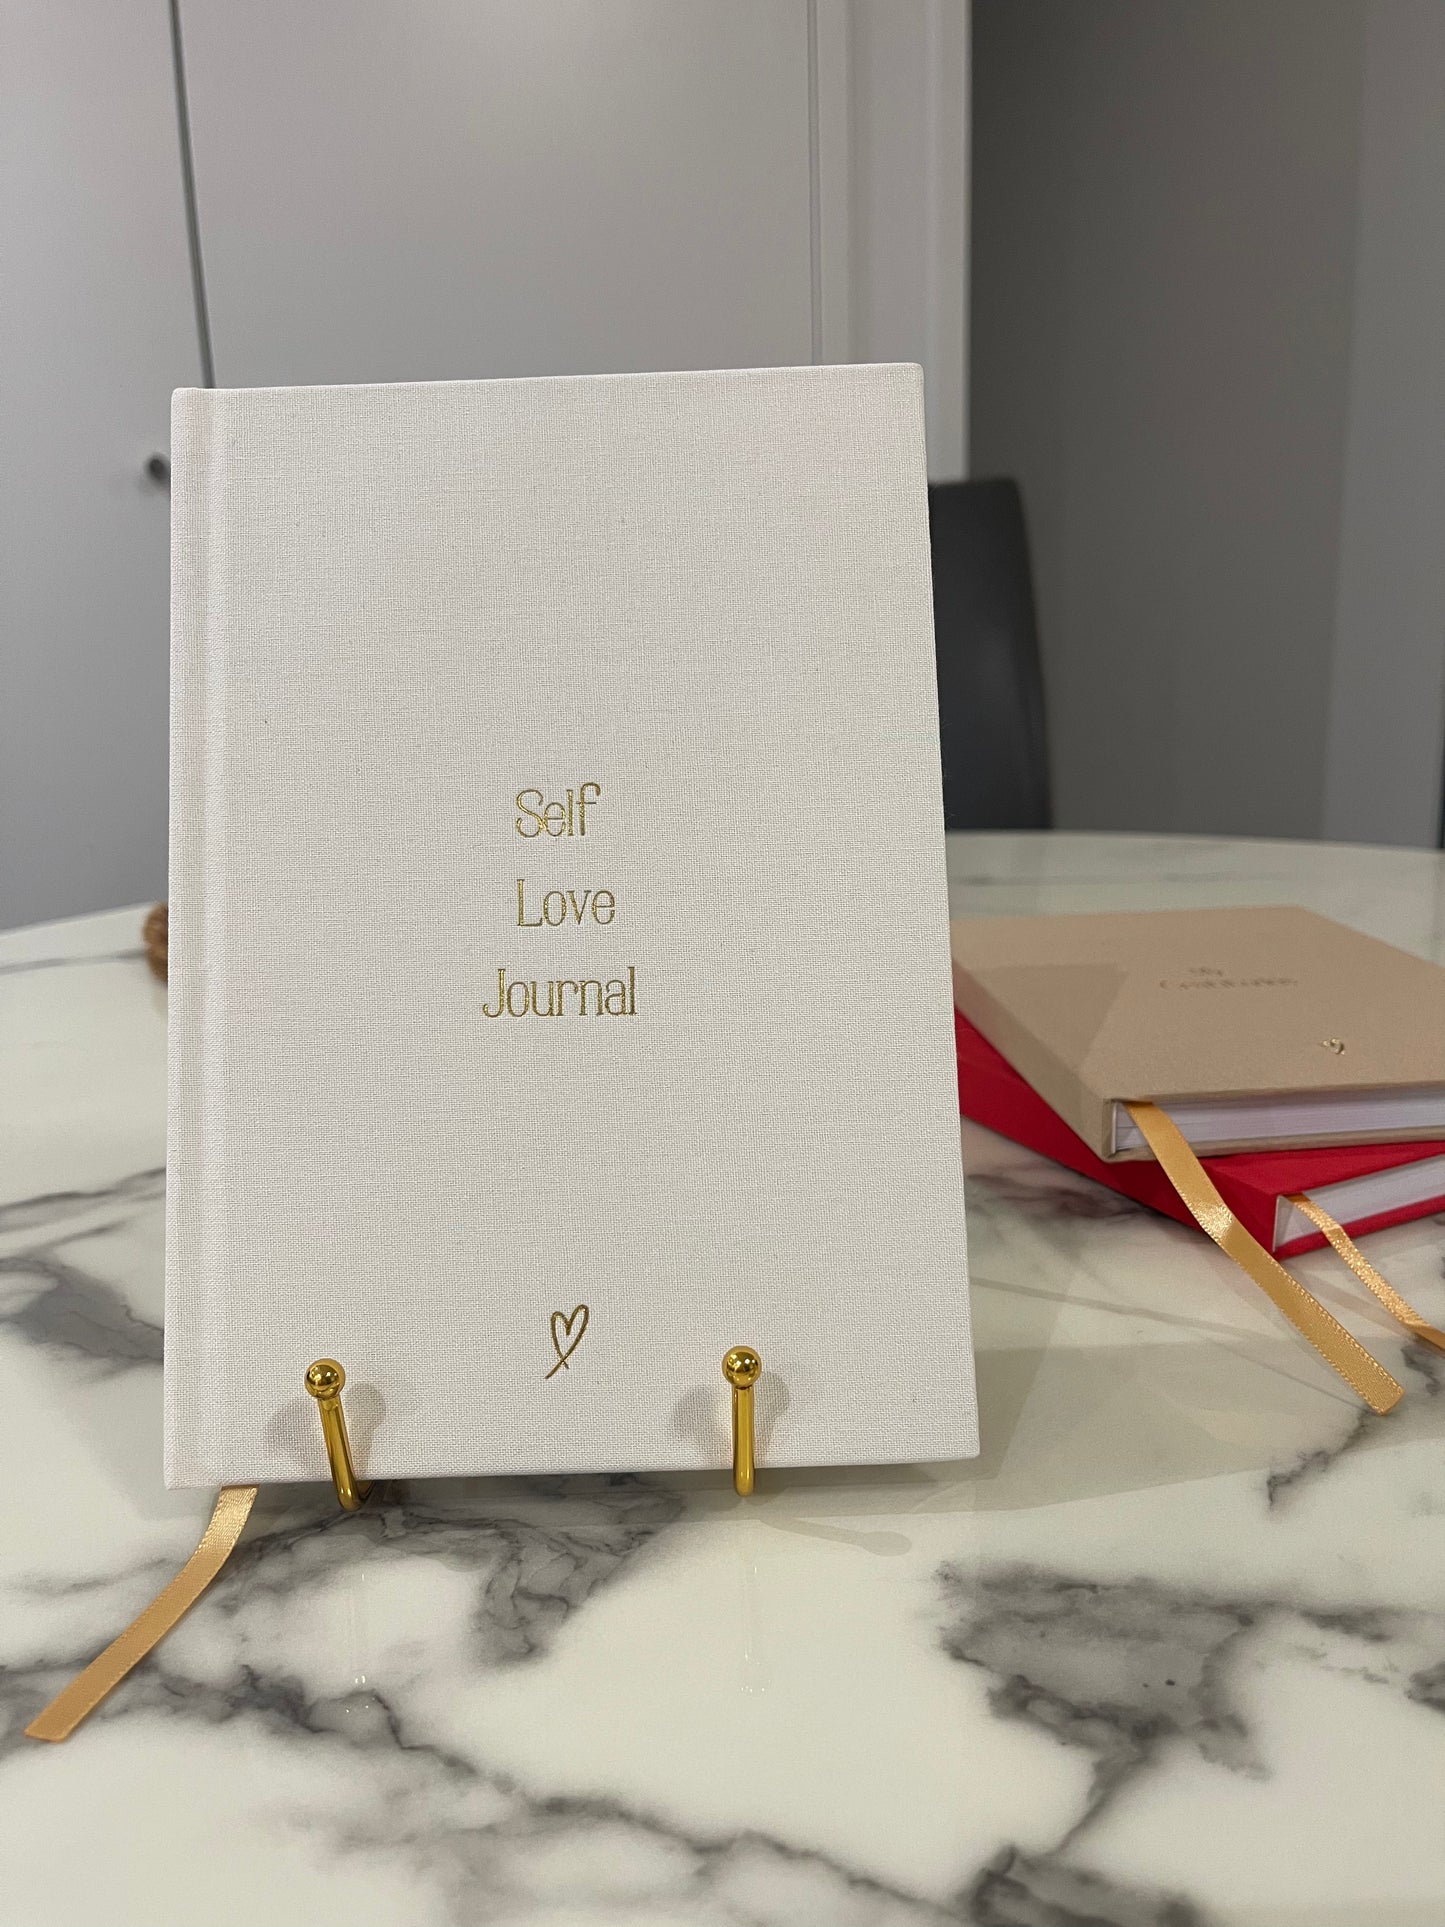 Self
Love
Journal